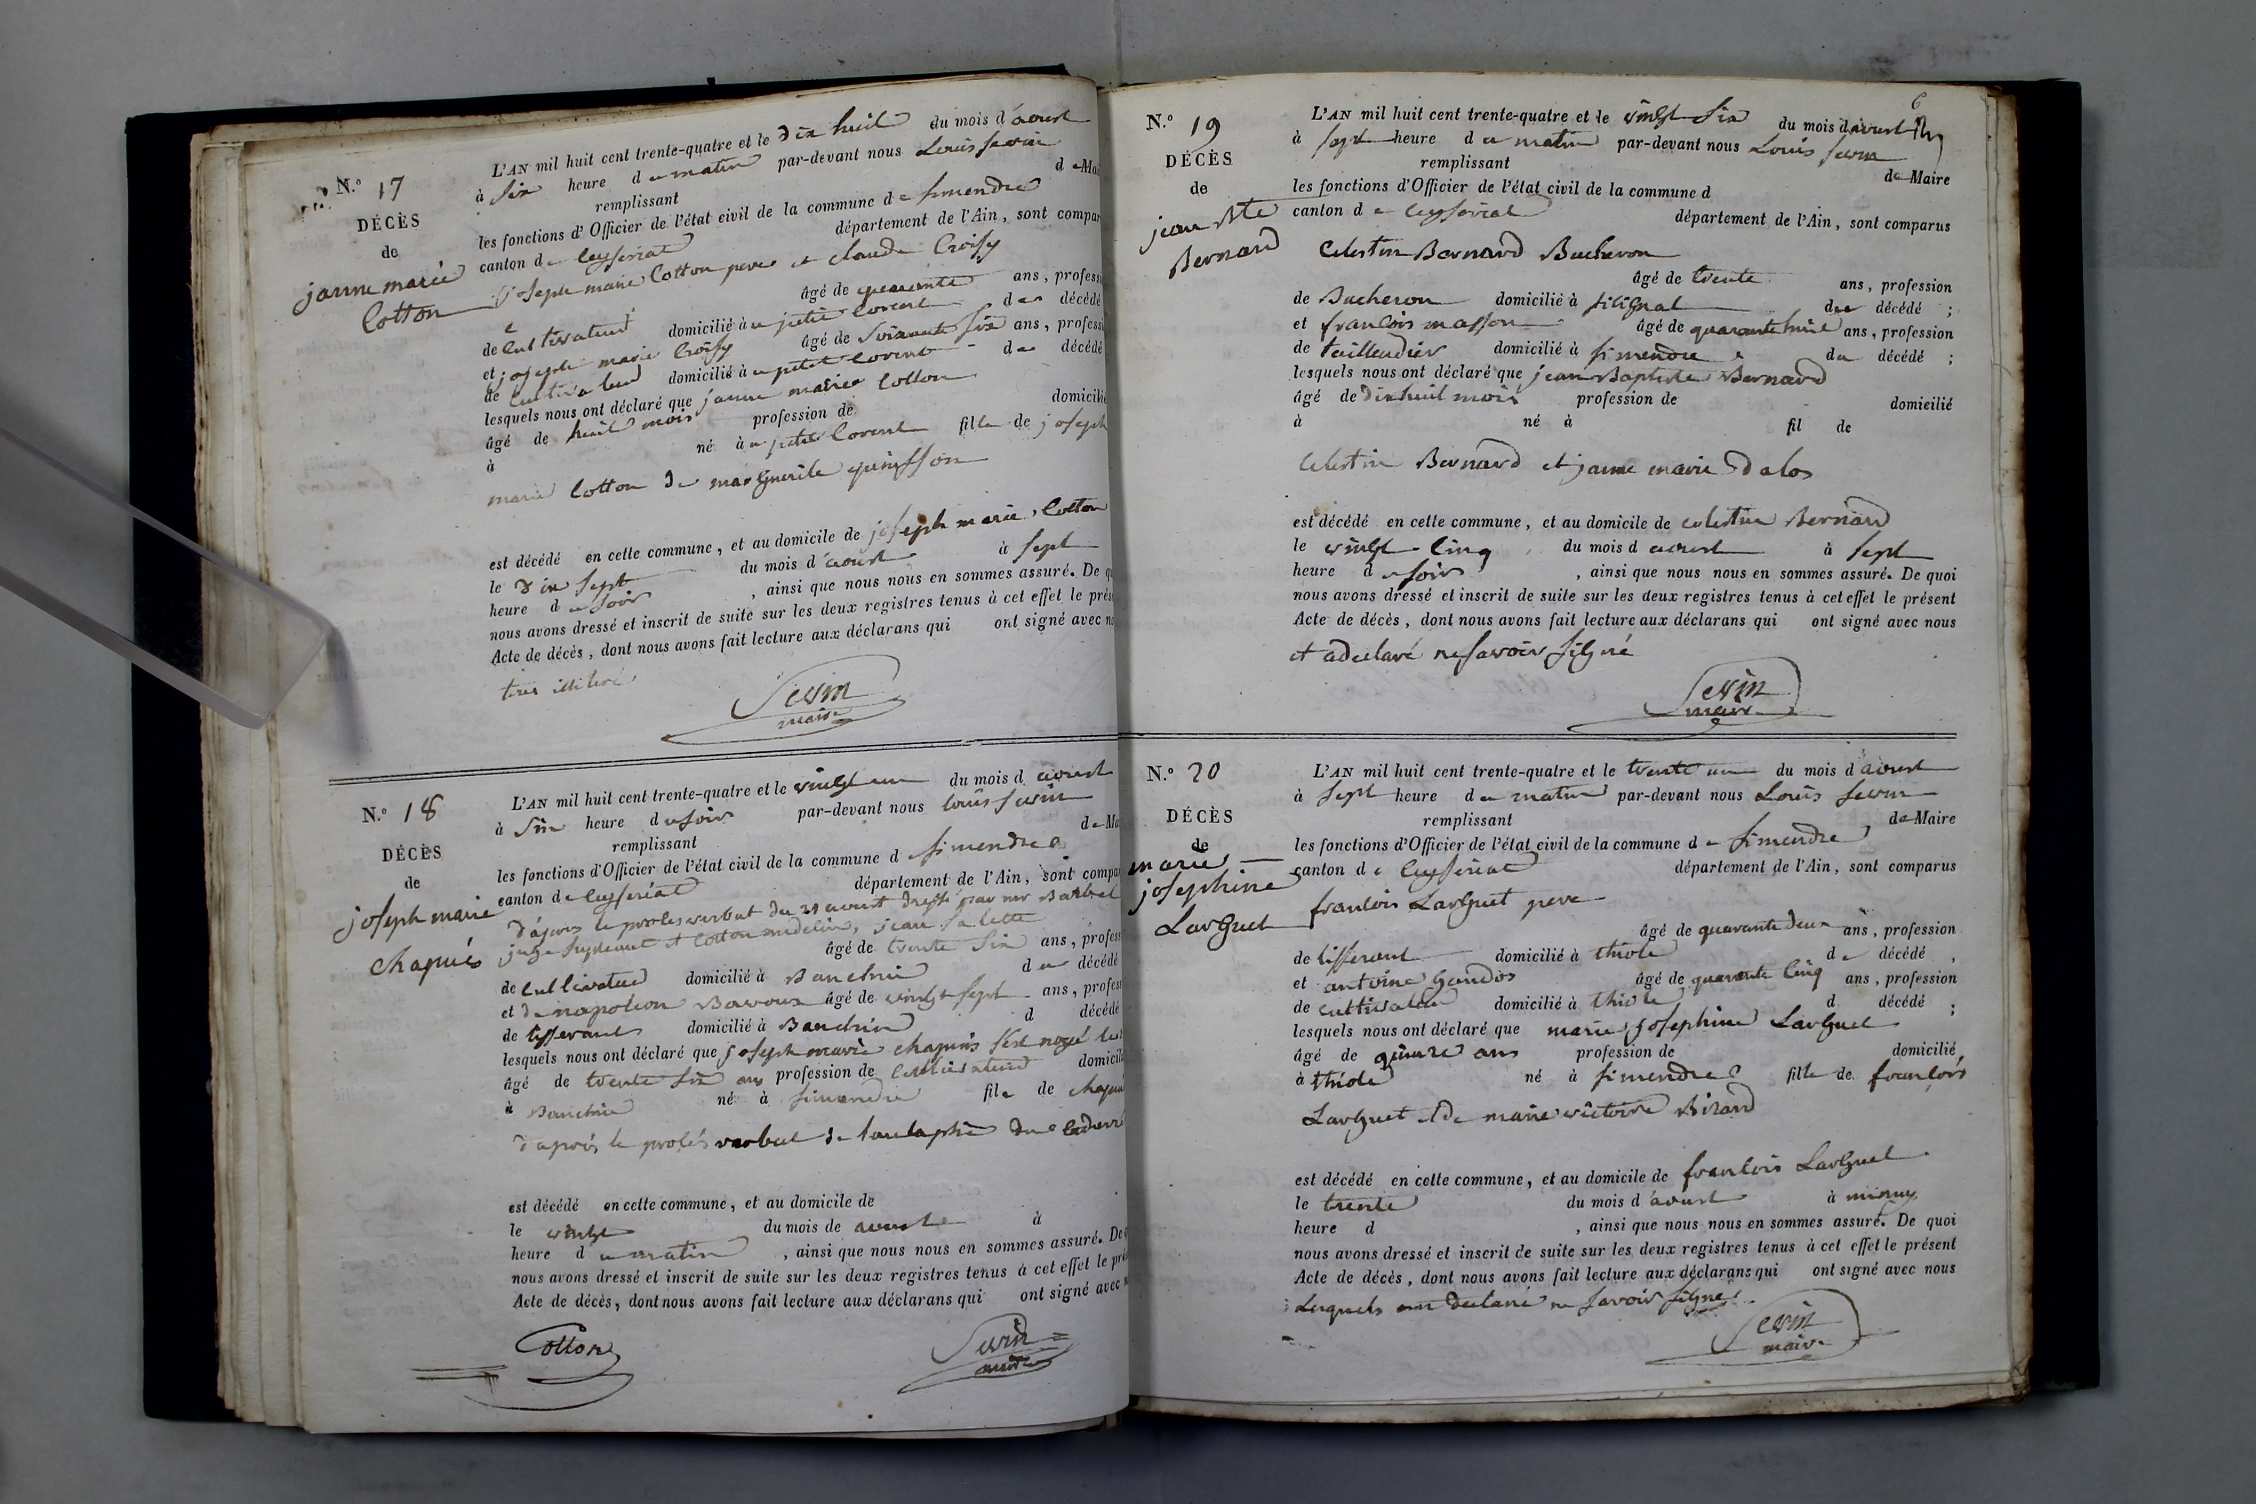 N.º 17
DÉCÈS
de
janne marie
Cotton
L'AN mil huit cent trente-quatre et le dix huit du mois d'aoust
à six heure du matin par-devant nous Louis Sevin
remplissant de Mai
les fonctions d'Officier de l'état civil de la commune de Simendre
canton de Ceyseriat département de l'Ain, sont compar
joseph marie Cotton pere et claude Croisy
âgé de quarante ans, professi
de Cultivateur domicilié à petit Corent du décédé
et joseph marie Croisy âgé de Soixante six ans, professi
de Cultivateur domicilié à petit Corent du décédé
lesquels nous ont déclaré que janne marie Cotton
âgé de huit mois profession de domicilié
à né à petit Corent fille de joseph
marie Cotton de marguerite
est décédé en cette commune, et au domicile de joseph marie Cotton
le dix sept du mois d'aoust à sept
heure du soir, ainsi que nous nous en sommes assuré. De q
nous avons dressé et inscrit de suite sur les deux registres tenus à cet effet le prés
Acte de décès, dont nous avons fait lecture aux déclarans qui ont signé avec no
Sevin
maire
N.º 18
DÉCÈS
de
joseph marie
chapuis
L'AN mil huit cent trente-quatre et le vingt un du mois d aoust
à Six heure du soir par-devant nous Louis Sevin
remplissant de Mai
les fonctions d'Officier de l'état civil de la commune de Simendre
canton de Ceyseriat département de l'Ain, sont compar
d'apres le proces verbal du 21 aoust dressé par mr Barbet
juge Supleant et Cotton medecin, jean
âgé de trente Six ans, profess
de Cultivateur domicilié à Banchin du décédé
et de napoleon Bavoux âgé de vingt sept ans, profess
de tisserant domicilié à Banchin d décédé
lesquels nous ont déclaré que joseph marie chapuis s'est noyé
âgé de trente six ans profession de Cultivateur domicilié
à Banchin né à Simendre fils de chapuis
d'après le procès verbal de du Cadavre
est décédé en cette commune, et au domicile de
le vingt du mois de aoust à
heure du matin, ainsi que nous nous en sommes assuré. De
nous avons dressé et inscrit de suite sur les deux registres tenus à cet effet le pré
Acte de décès, dont nous avons fait lecture aux déclarans qui ont signé avec
Cotton Sevin
maire
6
N.º 19
DÉCÈS
de
jean Bte
Bernard
L'AN mil huit cent trente-quatre et le vingt Six du mois d'aoust
à sept heure du matin par-devant nous Louis Sevin
remplissant de Maire
les fonctions d'Officier de l'état civil de la commune d
canton de Ceyseriat département de l'Ain, sont comparus
Celestin Bernard Bucheron
âgé de trente ans, profession
de Bucheron domicilié à silignat du décédé ;
et francois masson âgé de quarante huit ans, profession
de taillendier domicilié à Simendre du décédé ;
lesquels nous ont déclaré que jean Baptiste Bernard
âgé de dix huit mois profession de domicilié
à né à fil de
Celestin Bernard et janne marie dalos
est décédé en cette commune, et au domicile de celestin Bernard
le vingt Cinq du mois d aoust à sept
heure du soir, ainsi que nous nous en sommes assuré. De quoi
nous avons dressé et inscrit de suite sur les deux registres tenus à cet effet le présent
Acte de décès, dont nous avons fait lecture aux déclarans qui ont signé avec nous
et a declaré ne savoir signé
Sevin
maire
N.º 20
DÉCÈS
de
marie
josephine
Larguet
L'AN mil huit cent trente-quatre et le trente un du mois d'aoust
à Sept heure du matin par-devant nous Louis Sevin
remplissant de Maire
les fonctions d'Officier de l'état civil de la commune de Simendre
canton de Ceyseriat département de l'Ain, sont comparus
francois Larguet pere
âgé de quarante deux ans, profession
de tisserant domicilié à thiole de décédé ,
et antoine gandos âgé de quarante Cinq ans, profession
de cultivateur domicilié à thiole d décédé ;
lesquels nous ont déclaré que marie josephine Larguet
âgé de quinze ans profession de domicilié
à thiole né à Simendre fille de francois
Larguet et de marie victoire Birard
est décédé en cette commune, et au domicile de francois Larguet
le trente du mois d'aoust à minuy
heure d , ainsi que nous nous en sommes assuré. De quoi
nous avons dressé et inscrit de suite sur les deux registres tenus à cet effet le présent
Acte de décès, dont nous avons fait lecture aux déclarans qui ont signé avec nous
Lesquels ont declaré ne savoir signé
Sevin
maire